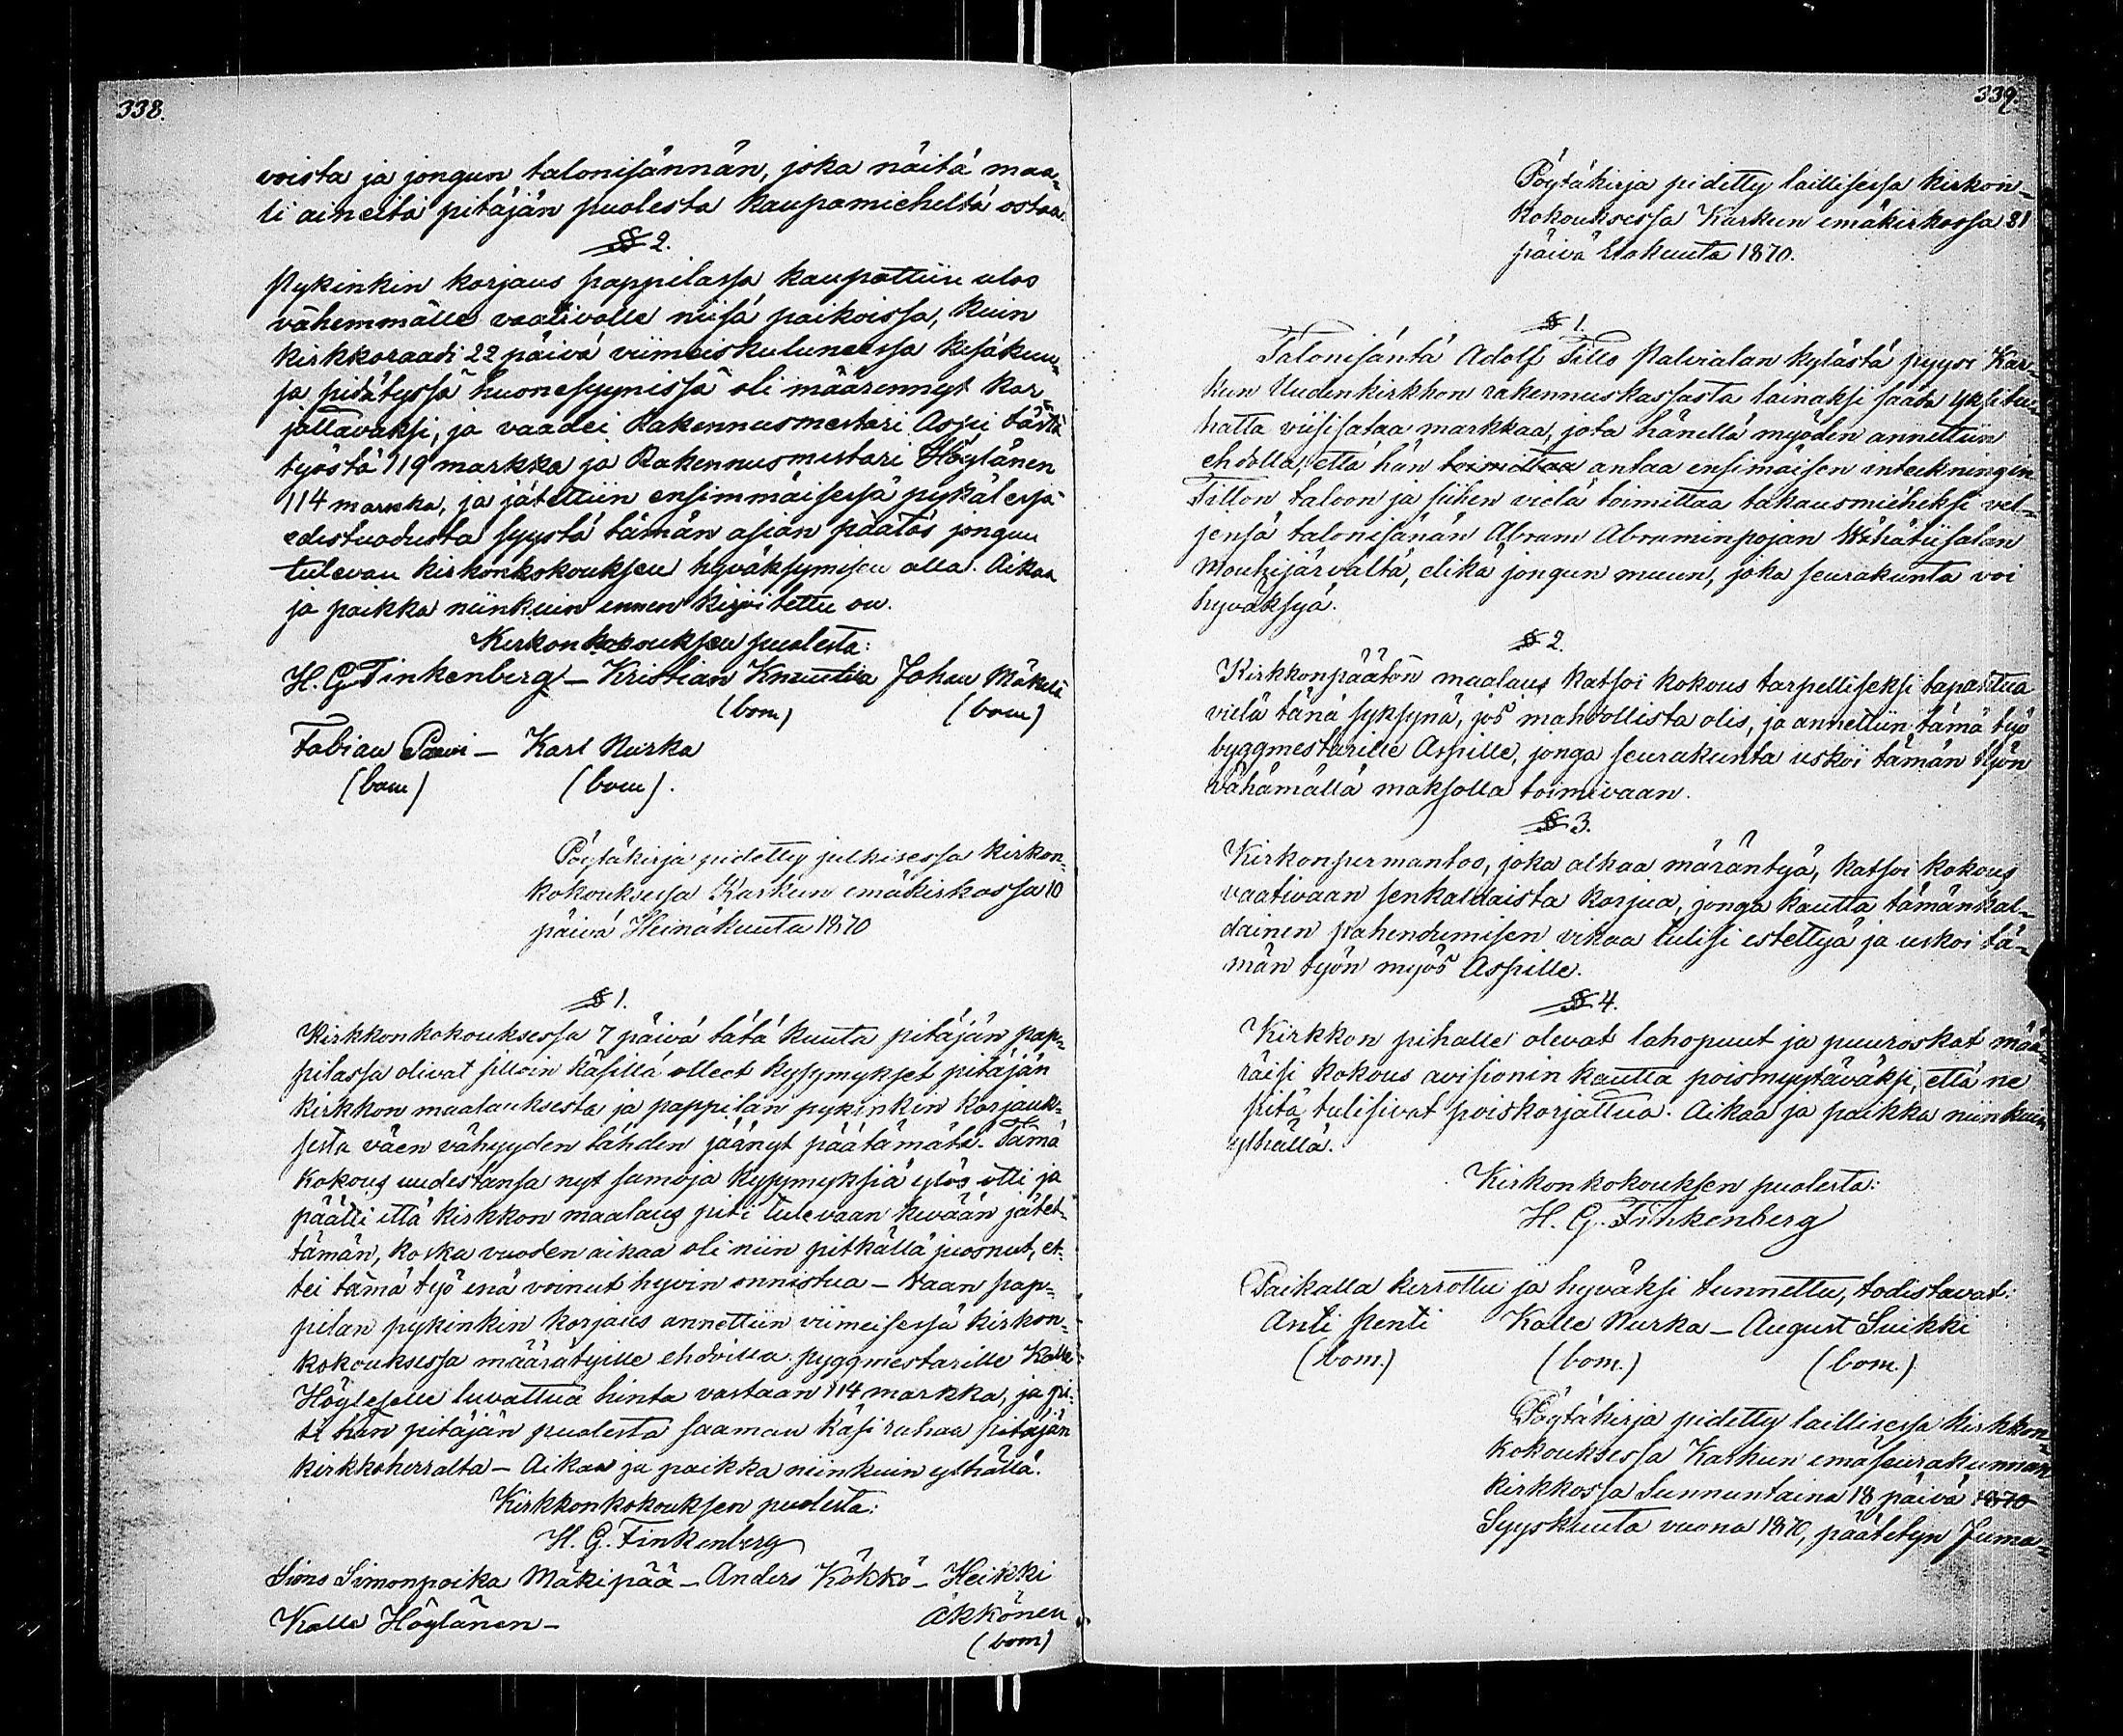 338.
voista ja jongun talonisännän, joka näitä maa-
li aineita pitäjän puolesta kaupamieheltä ostaa.
§ 2.
Pykinkin korjaus pappilassa kaupattiin ulos
vähemmälle vaativalle niisä paikoissa, kuin
kirkkoraadi 22 päivä viimeiskuluneessa kesäkuu-
sa pidätyssä huonesyynissä oli määrennyt kor-
jattavaksi, ja vaadei Rakennusmestari Aspi tästä
työstä 119 markka ja Rakennusmestari Höylänen
114 markka, ja jätettiin ensimmäisessä pykälessä
edestuodusta syystä tämän asian päätös jongun
tulevan kirkonkokouksen hyväksymisen alla. Aikaa
ja paikka niinkuin ennen kirjoitettu on.
Kirkonkokouksen puolesta:
H. G. Finkenberg – Kristian Knuutila Johan Mäkelä
(bom) (bom)
Fabian Pawi – Karl Nurka
(bom) (bom).
Pöytäkirja pidetty julkisessa kirkon-
kokouksessa Karkun emäkirkossa 10
päivä Heinäkuuta 1870
§ 1.
Kirkkonkokouksessa 7 päivä tätä kuuta pitäjän pap-
pilassa olivat silloin käsillä olleet kysymykset pitäjän
kirkkon maalauksesta ja pappilan pykinkin korjauk-
sesta väen vähyyden tähden jäänyt päätämätä. Tämä
kokous uudestansa nyt samoja kysymyksiä ylös otti, ja
päätti että kirkkon maalaus piti tulevaan kevään jätet-
tämän, koska vuoden aikaa oli niin pitkällä juosnut, et-
tei tämä työ enä voinut hyvin onnistua – Vaan pap-
pilan pykinkin korjaus annettiin viimeisessä kirkon-
kokouksessa määrätyille ehdoilla pyggmestarille Kalle
Höyleselle luvattua hinta vastaan 114 markka, ja pi-
ti hän pitäjän puolesta saaman käsi rahaa pitäjän
kirkkoherralta – Aikaa ja paikka niinkuin ylhällä.
Kirkkonkokouksen puolesta:
H. G. Finkenberg
Simo Simonpoika Mäkipää – Anders Kökkö – Heikki
Kalle Höylänen – Äkkönen
(bom)
339.
Pöytäkirja pidetty laillisessa kirkon-
kokouksessa Karkun emäkirkossa 21
päivä Elokuuta 1870.
§ 1.
Talonisäntä Adolf Tillo Palvialan kylästä pyysi Kar-
kun Uudenkirkkon rakennuskassasta lainaksi saada yksitu-
hatta viisisataa markkaa, jota hänellä myöden annettiin
ehdolla, että hän toimittaa antaa ensimäisen inteckningin
Tillon taloon ja siihen vielä toimittaa takausmieheksi vel-
jensä talonisänän Abram Abraminpojan Vähätiisalan
Mouhijärvältä, elikä jongun muun, joka seurakunta voi
hyväksyä.
§ 2.
Kirkkonpäätön maalaus katsoi kokous tarpelliseksi tapahtua
vielä tänä syksynä, jos mahdollista olis, ja annettiin tämä työ
byggmestarille Aspille, jonga seurakunta uskoi tämän työn
vähämällä maksolla toimivaan.
§ 3.
Kirkonpermantoo, joka alkaa määräntyä, katsoi kokous
vaativaan senkaldaista korjua, jonga kautta tämänkal-
dainen pahendumisen vikaa tulisi estettyä ja uskoi tä-
män työn myös Aspille.
§ 4.
Kirkkon pihalle olevat lahopuut ja puuroskat mää-
räisi kokous avisionin kautta poismyytäväksi, että ne
sitä tulisivat poiskorjattua. Aikaa ja paikka niinkuin
ylhällä.
Kirkonkokouksen puolesta:
H. G. Finkenberg
Paikalla kerrottu ja hyväksi tunnettu, todistavat:
Anti Penti Kalle Nurka – August Suikki
(bom.) (bom.) (bom.)
Pöytäkirja pidetty laillisessa kirkkon-
kokouksessa Karkun emäseurakunnan
kirkkossa Sunnuntaina 18 päivä 1870
Syyskuuta vuona 1870, päätetyn Juma-